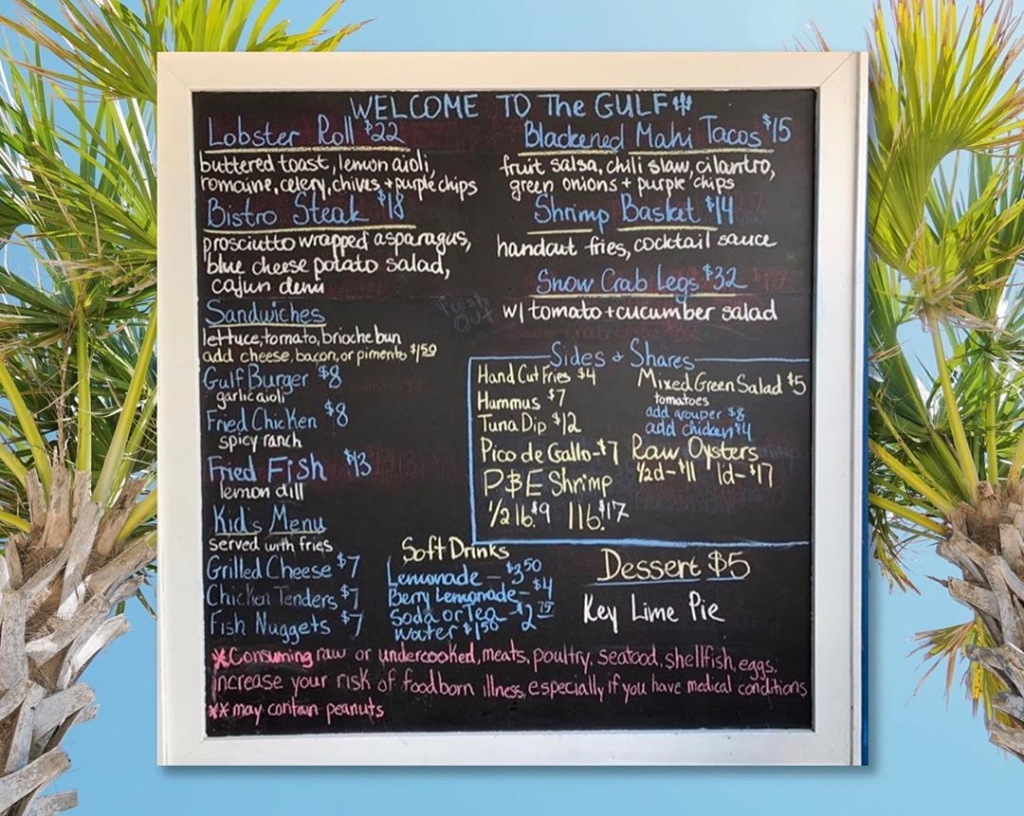 WELCOME TO The GULF
Lobster Roll $22
buttered toast, lemon aioli,
romaine, celery, chives + purple chips
Bistro Steak $18
prosciutto wrapped asparagus,
blue cheese potato salad,
cajun demi
Sandwiches
lettuce, tomato, brioche bun
add cheese, bacon, or pimento $1.50
Gulf Burger $8
garlic aioli
Fried Chicken $8
spicy ranch
Fried Fish $13
lemon dill
Kid's Menu
served with fries
Grilled Cheese $7
Chicken Tenders $7
Fish Nuggets $7
Blackened Mahi Tacos $15
fruit salsa, chili slaw, cilantro,
green onions + purple chips
Shrimp Basket $14
handcut fries, cocktail sauce
Snow Crab Legs $32
w/ tomato + cucumber salad
Sides + Shares
Hand Cut Fries $4
Hummus $7
Tuna Dip $12
Pico de Gallo - $7
P&E Shrimp
1/2 lb. $9 1 lb. $17
Mixed Green Salad $5
tomatoes
add grouper $8
add chicken $4
Raw Oysters
1/2d - $11 1d - $17
Soft Drinks
Lemonade - $3.50
Berry Lemonade - $4
Soda or Tea - $2.75
Water $1.50
Dessert $5
Key Lime Pie
*Consuming raw or undercooked, meats, poultry, seafood, shellfish, eggs,
increase your risk of foodborn illness, especially if you have medical conditions
** may contain peanuts